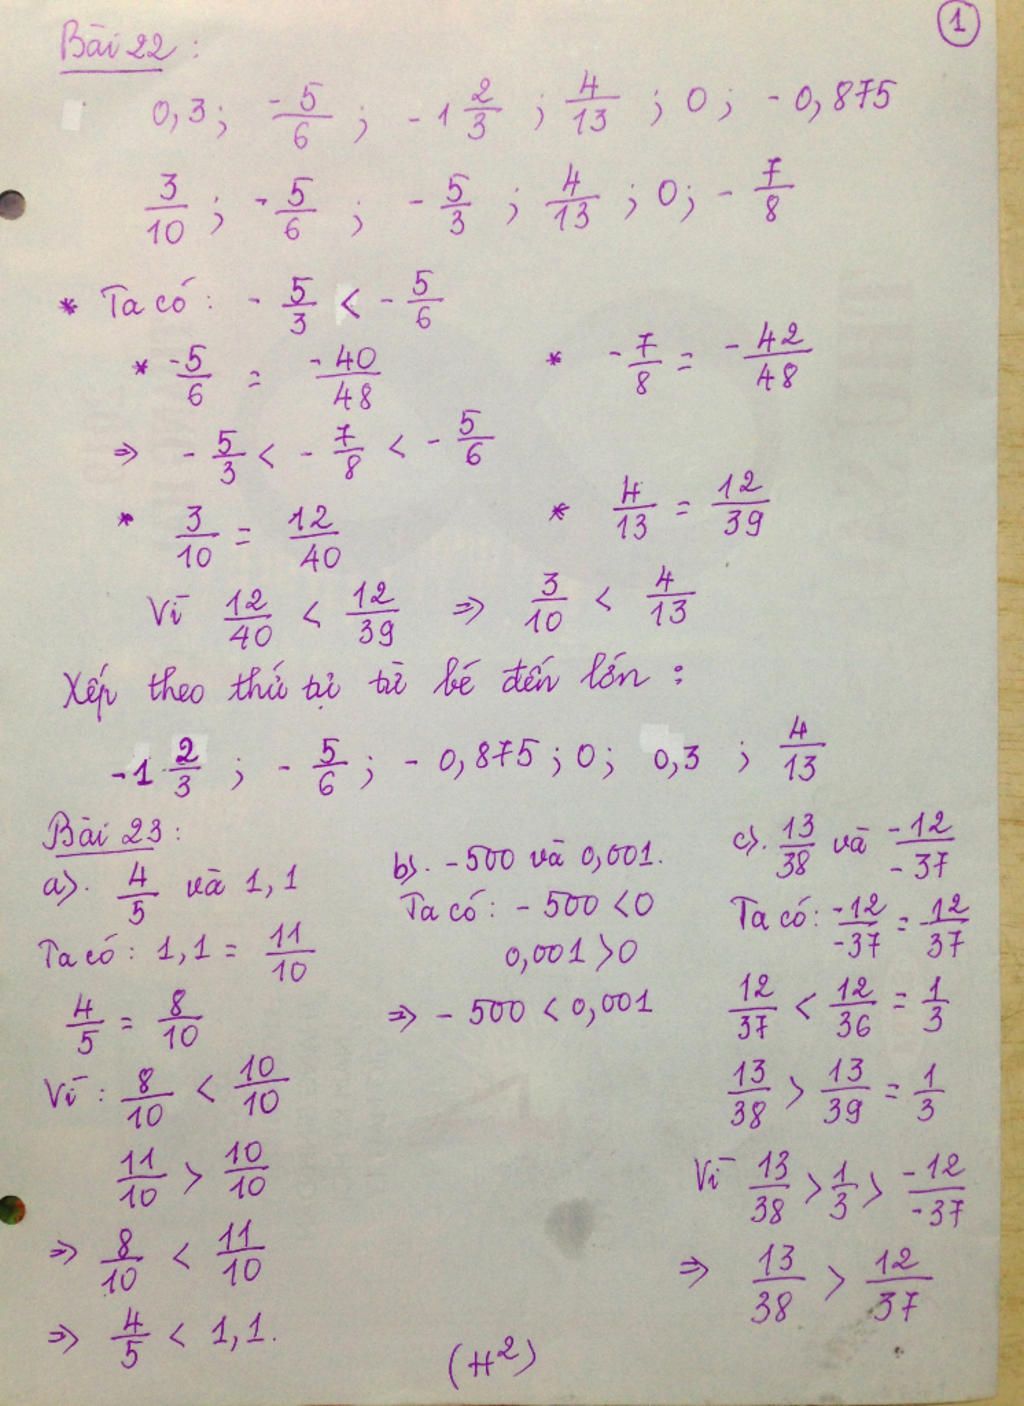 1
Bài 22 :
0,3 ; -5/6 ; -1 2/3 ; 4/13 ; 0 ; -0,875
3/10 ; -5/6 ; -5/3 ; 4/13 ; 0 ; -7/8
* Ta có : -5/3 < -5/6
* -5/6 = -40/48
* -7/8 = -42/48
⇒ -5/3 < -7/8 < -5/6
* 3/10 = 12/40
* 4/13 = 12/39
Vì 12/40 < 12/39 ⇒ 3/10 < 4/13
Xếp theo thứ tự từ bé đến lớn :
-1 2/3 ; -5/6 ; -0,875 ; 0 ; 0,3 ; 4/13
Bài 23 :
a). 4/5 và 1,1
Ta có : 1,1 = 11/10
4/5 = 8/10
Vì : 8/10 < 10/10
11/10 > 10/10
⇒ 8/10 < 11/10
⇒ 4/5 < 1,1.
b). -500 và 0,001.
Ta có : -500 < 0
0,001 > 0
⇒ -500 < 0,001
c). 13/38 và -12/-37
Ta có : -12/-37 = 12/37
12/37 < 12/36 = 1/3
13/38 > 13/39 = 1/3
Vì 13/38 > 1/3 > -12/-37
⇒ 13/38 > 12/37
(H²)